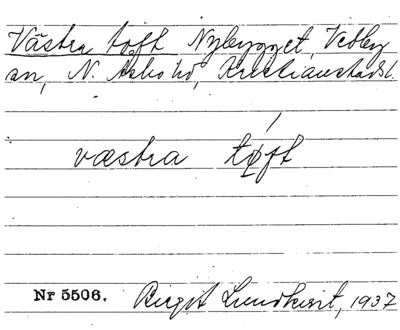 Västra toft Nybygget, Vedby
sn, N. Åsbo hd, Kristianstads l.
væstra tøft
Nr 5506. Birgit Lundkvist, 1937